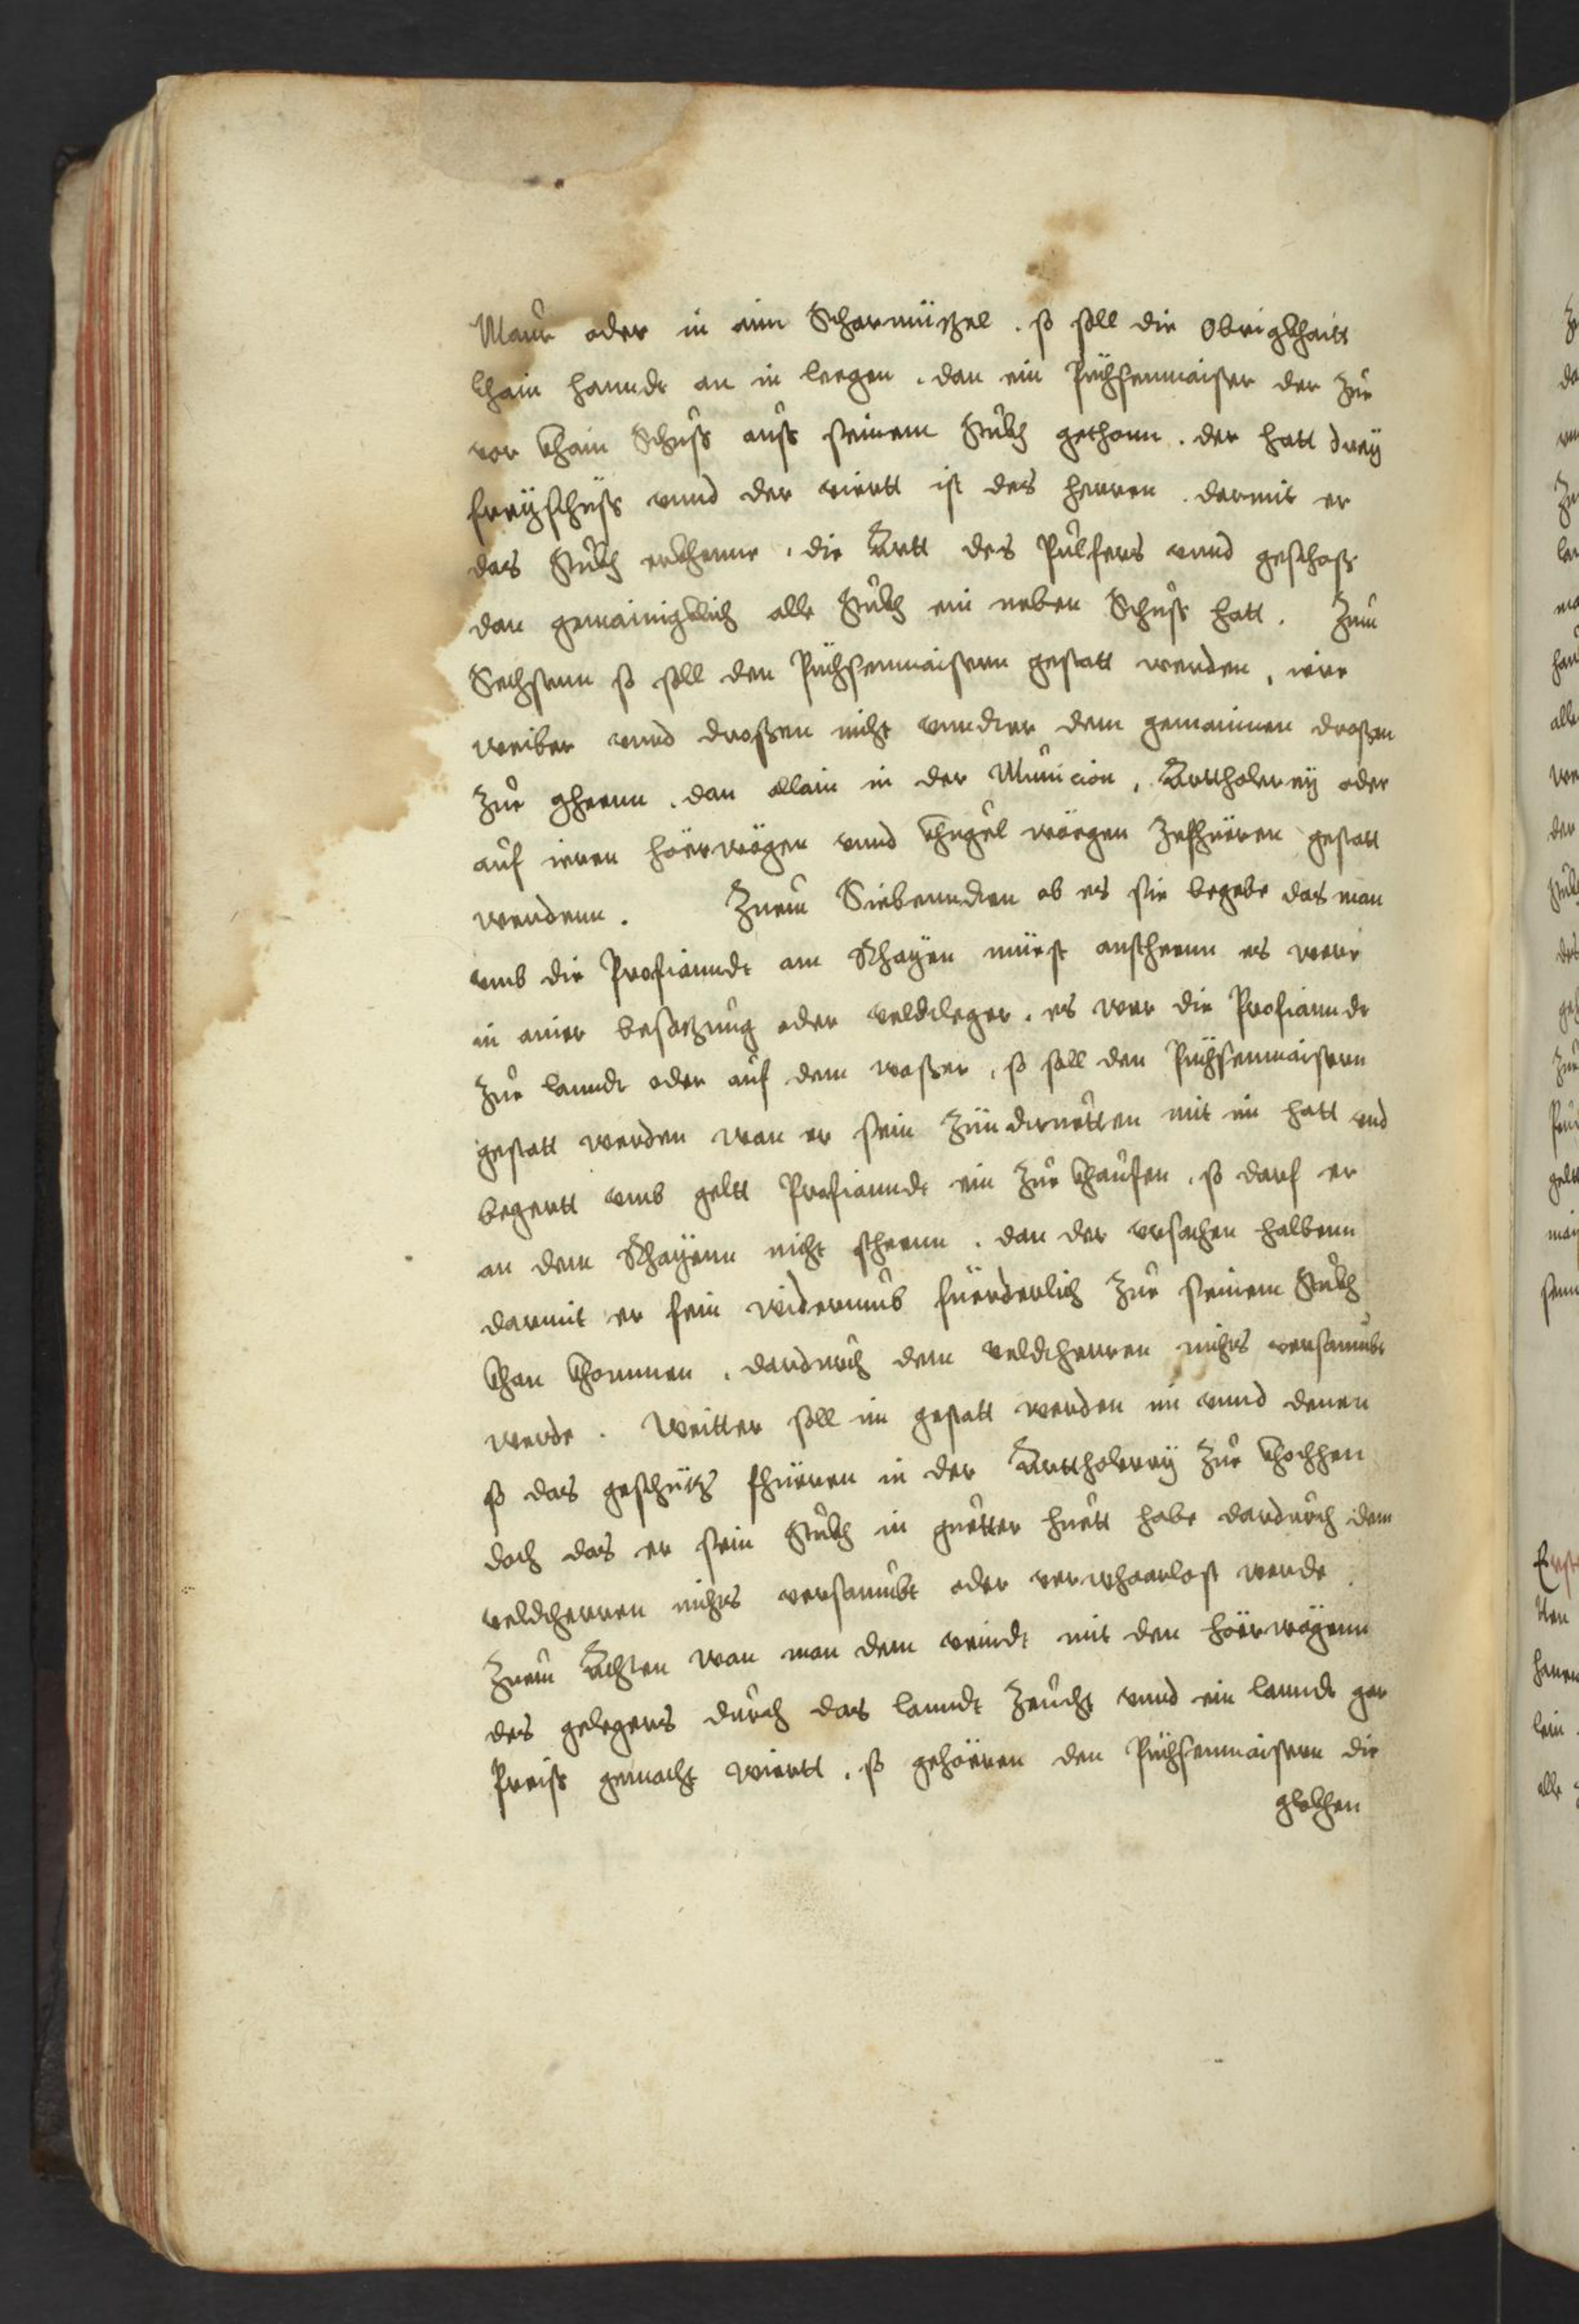 Maur oder in ain Scharmützel . so soll die Obrigkhaitt
khain hanndt an in leegen . dan ein Püchsenmaister der zur
vor khain Schuss auss seinem Stukh gethonn . der hatt drey
freyschüss vnnd der viertt ist des herren . darmit er
das Stukh erkhenne . die Artt des Pulfers vnnd geschoss
dan gemainigklich alle Stukh ein neben Schuss hatt . Zum
Sechstenn so soll den Püchsenmaistern gestatt werden , iere
weiber vnnd drossen nicht vnndter dem gemainen drossen
zur gheenn . dan allain in der Municion , Arttholerey oder
auf ieren höerwägen vnnd khugel wäegen zefhüeren gestatt
werdenn . Zuem Siebenndten ob es sie begebe das man
vmb die Profianndt am Rhayen müest anstheenn es were
in ainer besatzung oder veldtleger . es wer die Profianndt
zur lanndt oder auf dem wasser , so soll den Püchsenmaistern
gestatt werden wan er sein Zündtruetten mit im hatt vnd
begertt vmb geltt Profianndt ein zur khaufen , so darf er
an dem Rhayenn nicht stheenn . dan der vrsachen halbenn
darmit er sein widerumb füerderlich zur seinem Stukh
khan khommen . dardurch dem veldtherren nichts versaumbt
werde . Weitter soll im gestatt werden im vnnd denen
so das geschütz fhüeren in der Arttholerey zur khochhen
doch das er sein Stukh in guetter huett habe dardurch dem
veldtherren nichts versaumbt oder verwhaarlost werde .
Zuem Achten wan man dem veindt mit den höerwägenn
des gelegers durch das lanndt zeucht vnnd ein lanndt gar
Preiss gemacht wiertt . so gehöeren den Püchsenmaistern die
glokhen